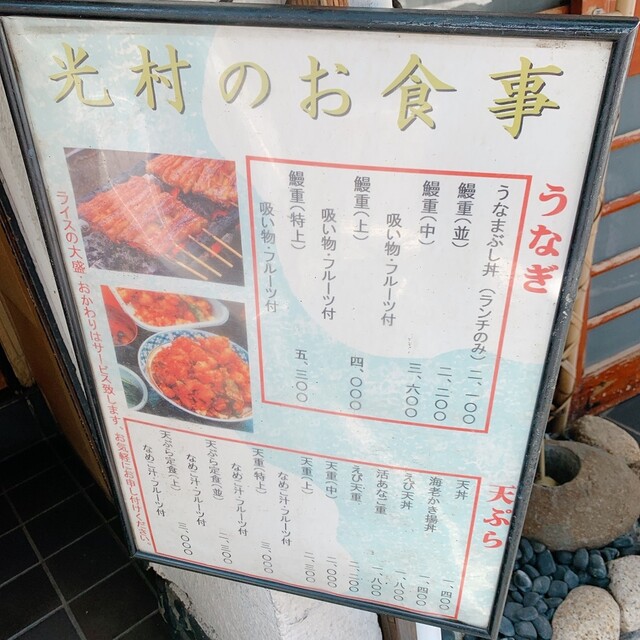 光村のお食事
うなぎ
うなまぶし丼（ランチのみ）二、一〇〇
鰻重（並）二、二〇〇
鰻重（中）三、六〇〇
吸い物・フルーツ付
鰻重（上）四、〇〇〇
吸い物・フルーツ付
鰻重（特上）五、三〇〇
吸い物・フルーツ付
天ぷら
天丼 一、四〇〇
海老かき揚丼 一、四〇〇
えび天丼 一、八〇〇
活あなご重 一、八〇〇
えび天重 二、二〇〇
天重（中）
天重（上）二、三〇〇
なめこ汁・フルーツ付
天重（特上）三、〇〇〇
なめこ汁・フルーツ付
天ぷら定食（並）二、三〇〇
なめこ汁・フルーツ付
天ぷら定食（上）三、〇〇〇
なめこ汁・フルーツ付
ライスの大盛・おかわりはサービス致します。お気軽にお申し付けください。